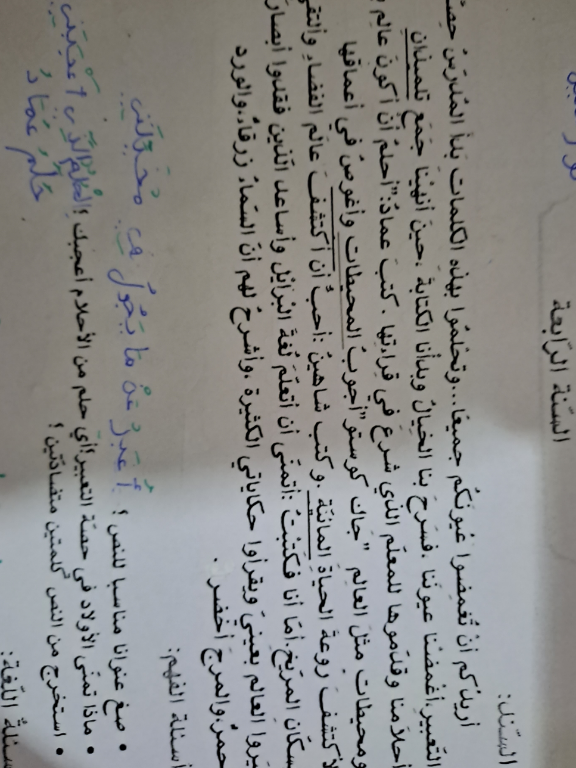 السنة الرّابعة
السّند:
أريدُكم أنْ تُغمِضُوا عُيونَكُم جميعًا...وتحْلمُوا بهذه الكلماتِ بَدأ المُدرّسُ حِصّ
التّعبير.أغمضْنا عيونَنا .فسَرحَ بنا الخيالُ وبدأنا الكتابةَ .حينَ أنهيْنا جمَع تلميذانِ
أحلامنَا وقدّموها للمعلّم الّذي شرعَ في قراءتِها . كتبَ عمادُ:"أحلمُ أن أكونَ عالِم
ومحيطات مثلَ العالمِ "جاك كوستو"أجوبُ المحيطات وأغوصُ في أعماقِها
لأكتشفَ رَوعةَ الحياة المائيّة .وكتب شاهينُ :أحبُّ أن أكتشفَ عالَم الفضاءِ وألتقي
سكّان المرّيخ.أمّا أنا فكتبْتُ :أتمنّى أن أتعلّم لُغةَ البرايْل وأساعد الّذين فقدوا أبصار
يروا العالم بعينيَ ويقرأوا حكاياتي الكثيرة .وأشرحُ لهم أنّ السّماءَ زرقاءُ،والورد
حمرُ،والمرجَ أخضر .
أسئلة الفهم:
• صغ عنوانا مناسبا للنص ؟ أُعَبِّرُ عَنْ مَا يَجُولُ فِي مُخَيِّلَتِي
• ماذا تمنّى الأولاد في حصّة التعبير؟أيّ حلم من الأحلام أعجبك ؟الحُلْمُ الَّذِي أعْجَبَنِي
حُلْمُ عِمَادُ
• استخرج من النص كلمتين متضادّتين ؟
سئلة اللّغة: